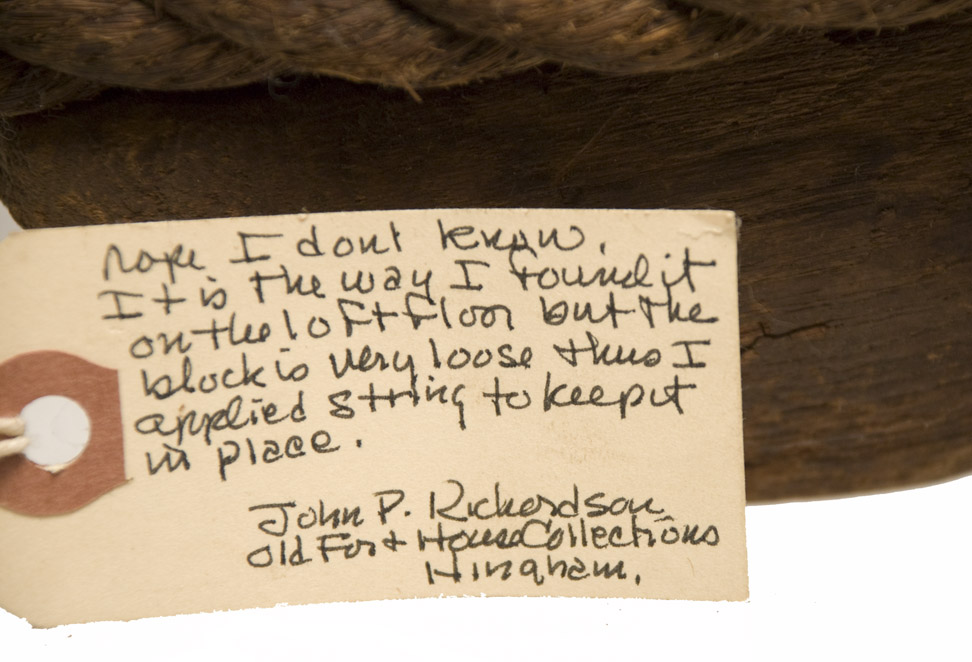 rope I dont know.
It is the way I found it
on the loft floor but the
block is very loose thus I
applied string to keep it
in place.
John P. Richardson
Old Fort House Collections
Hingham.